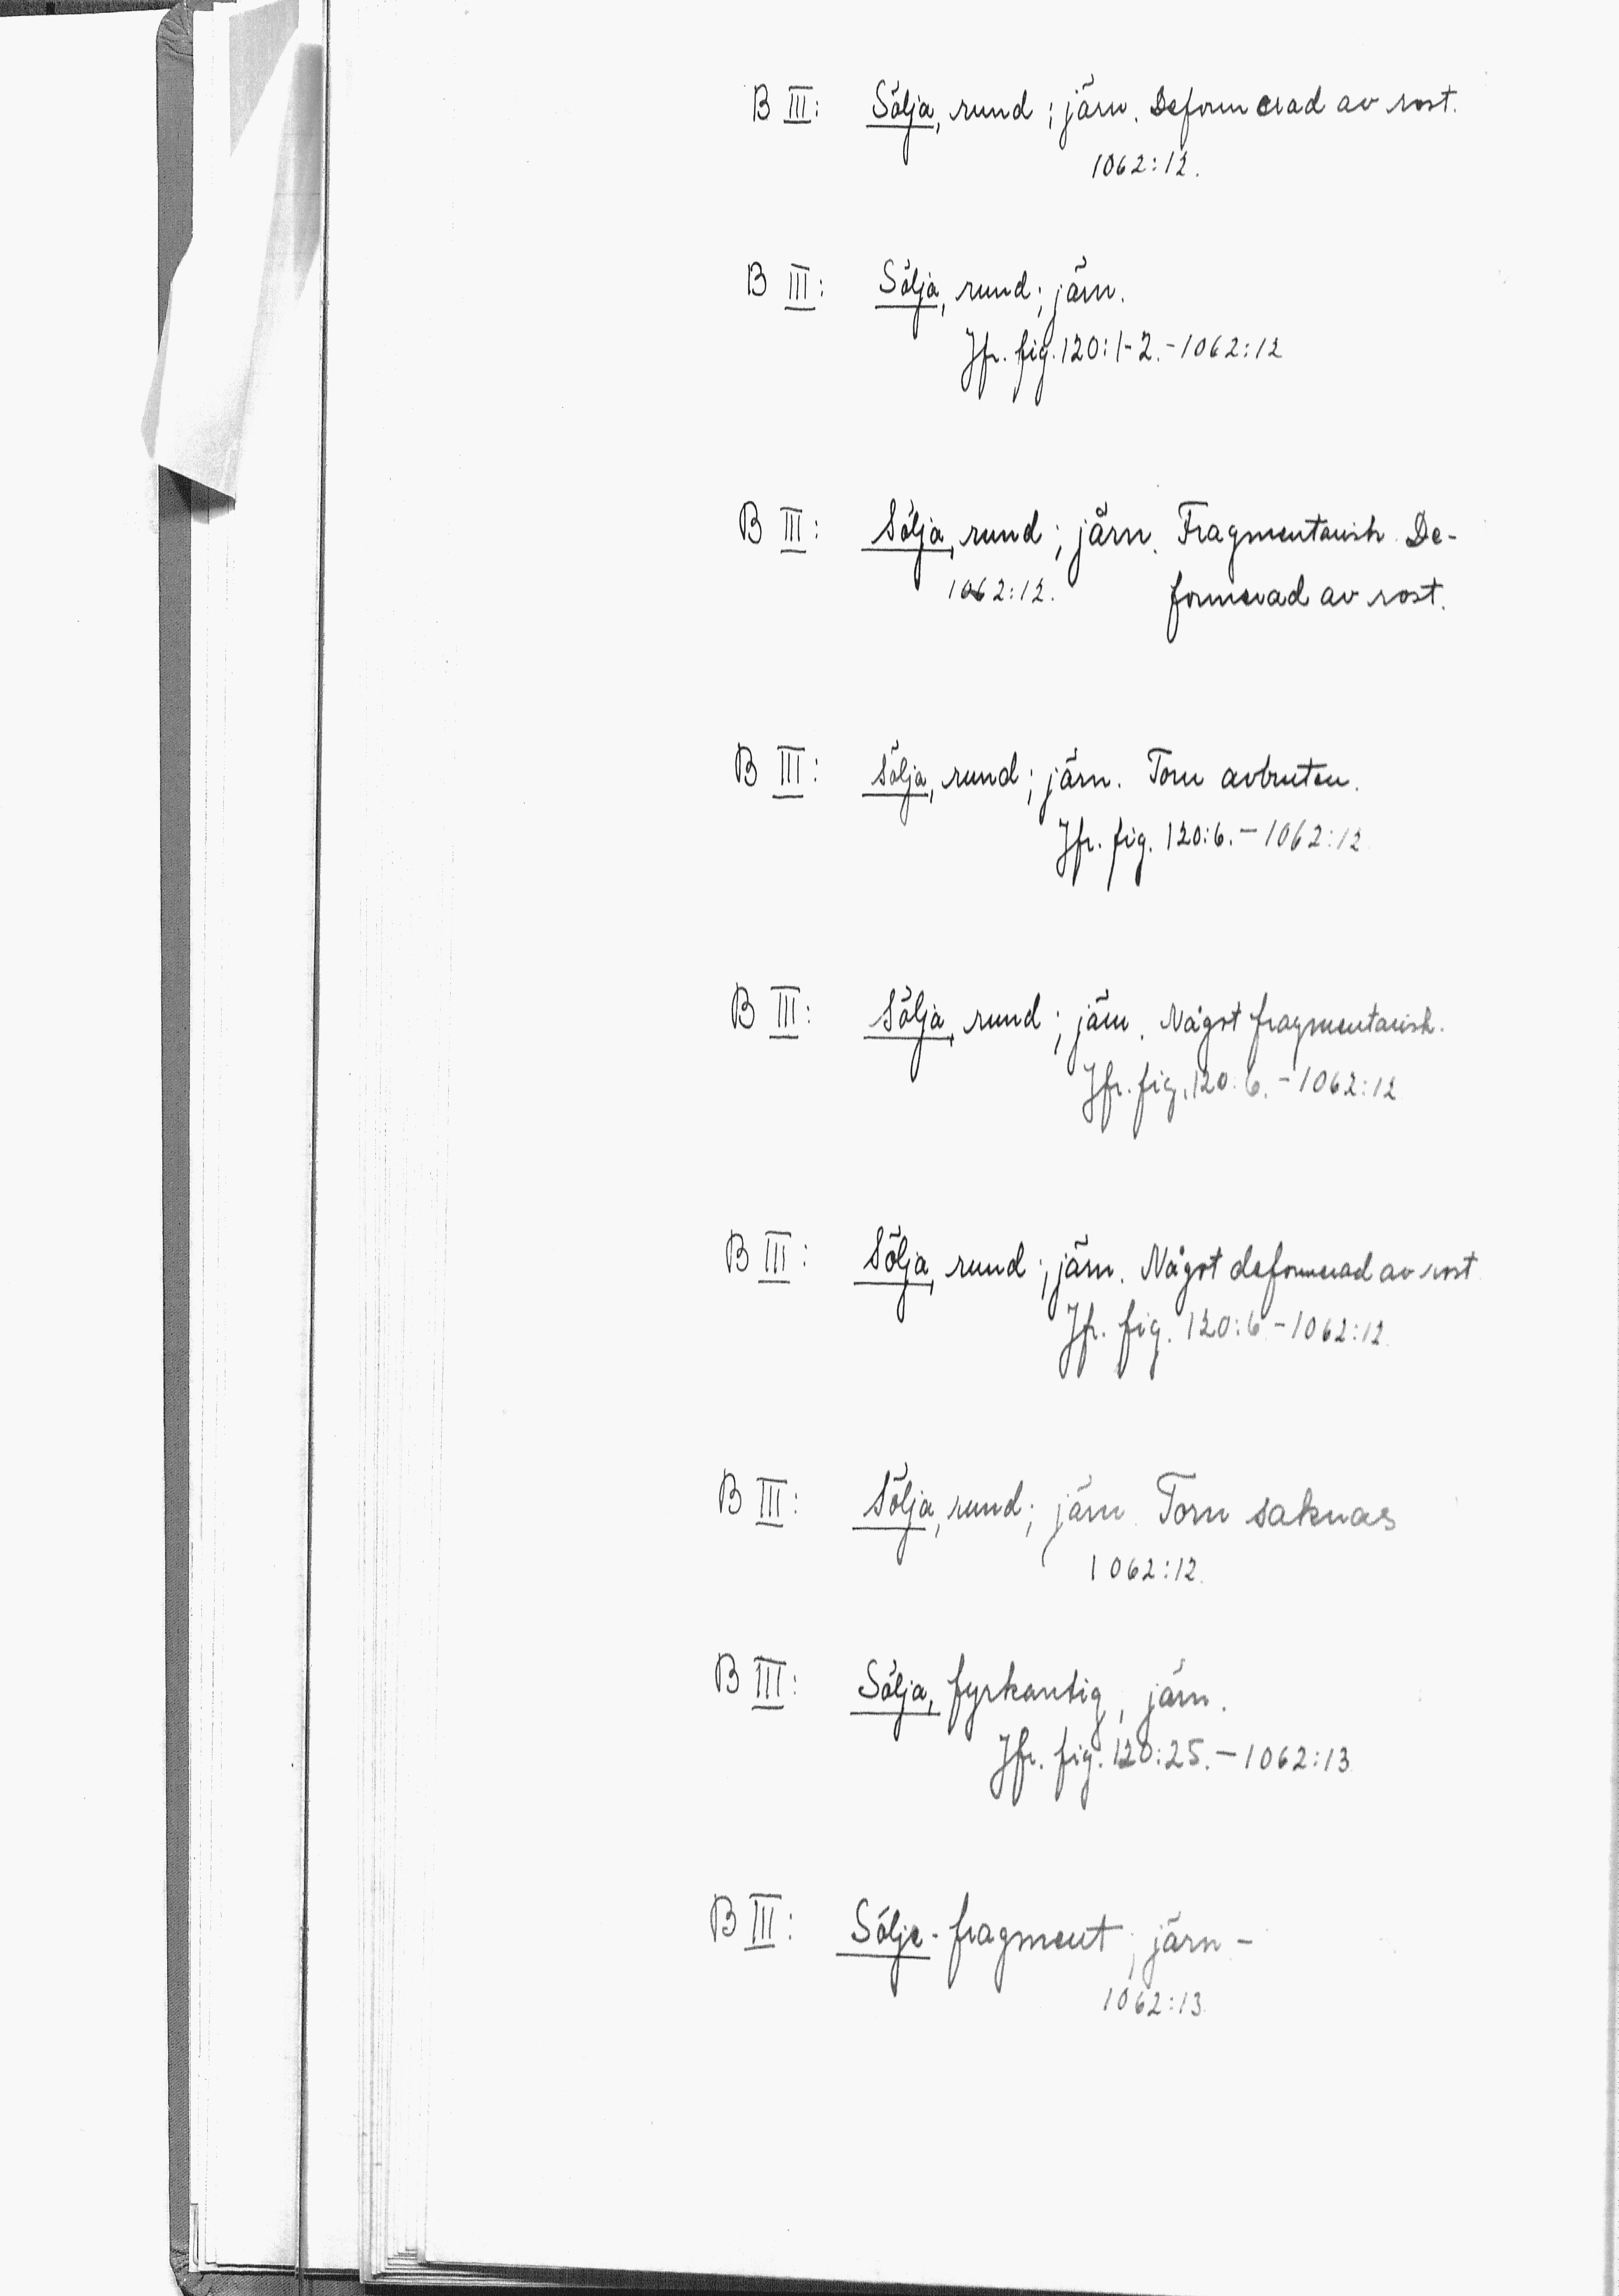 B III: Sölja, rund; järn. Deformerad av rost.
1062:12.
B III: Sölja, rund; järn.
Jfr. fig. 120:1-2. - 1062:12
B III: Sölja, rund; järn. Fragmentarisk. De-
1062:12. formerad av rost.
B III: Sölja, rund; järn. Torn avbruten.
Jfr. fig. 120:6. - 1062:12
B III: Sölja, rund; järn. Något fragmentarisk.
Jfr. fig. 120:6. - 1062:12
B III: Sölja, rund; järn. Något deformerad av rost
Jfr. fig. 120:6 - 1062:12.
B III: Sölja, rund; järn. Torn saknas
1062:12.
B III: Sölja, fyrkantig, järn.
Jfr. fig. 120:25. - 1062:13
B III: Sölje-fragment; järn -
1062:13